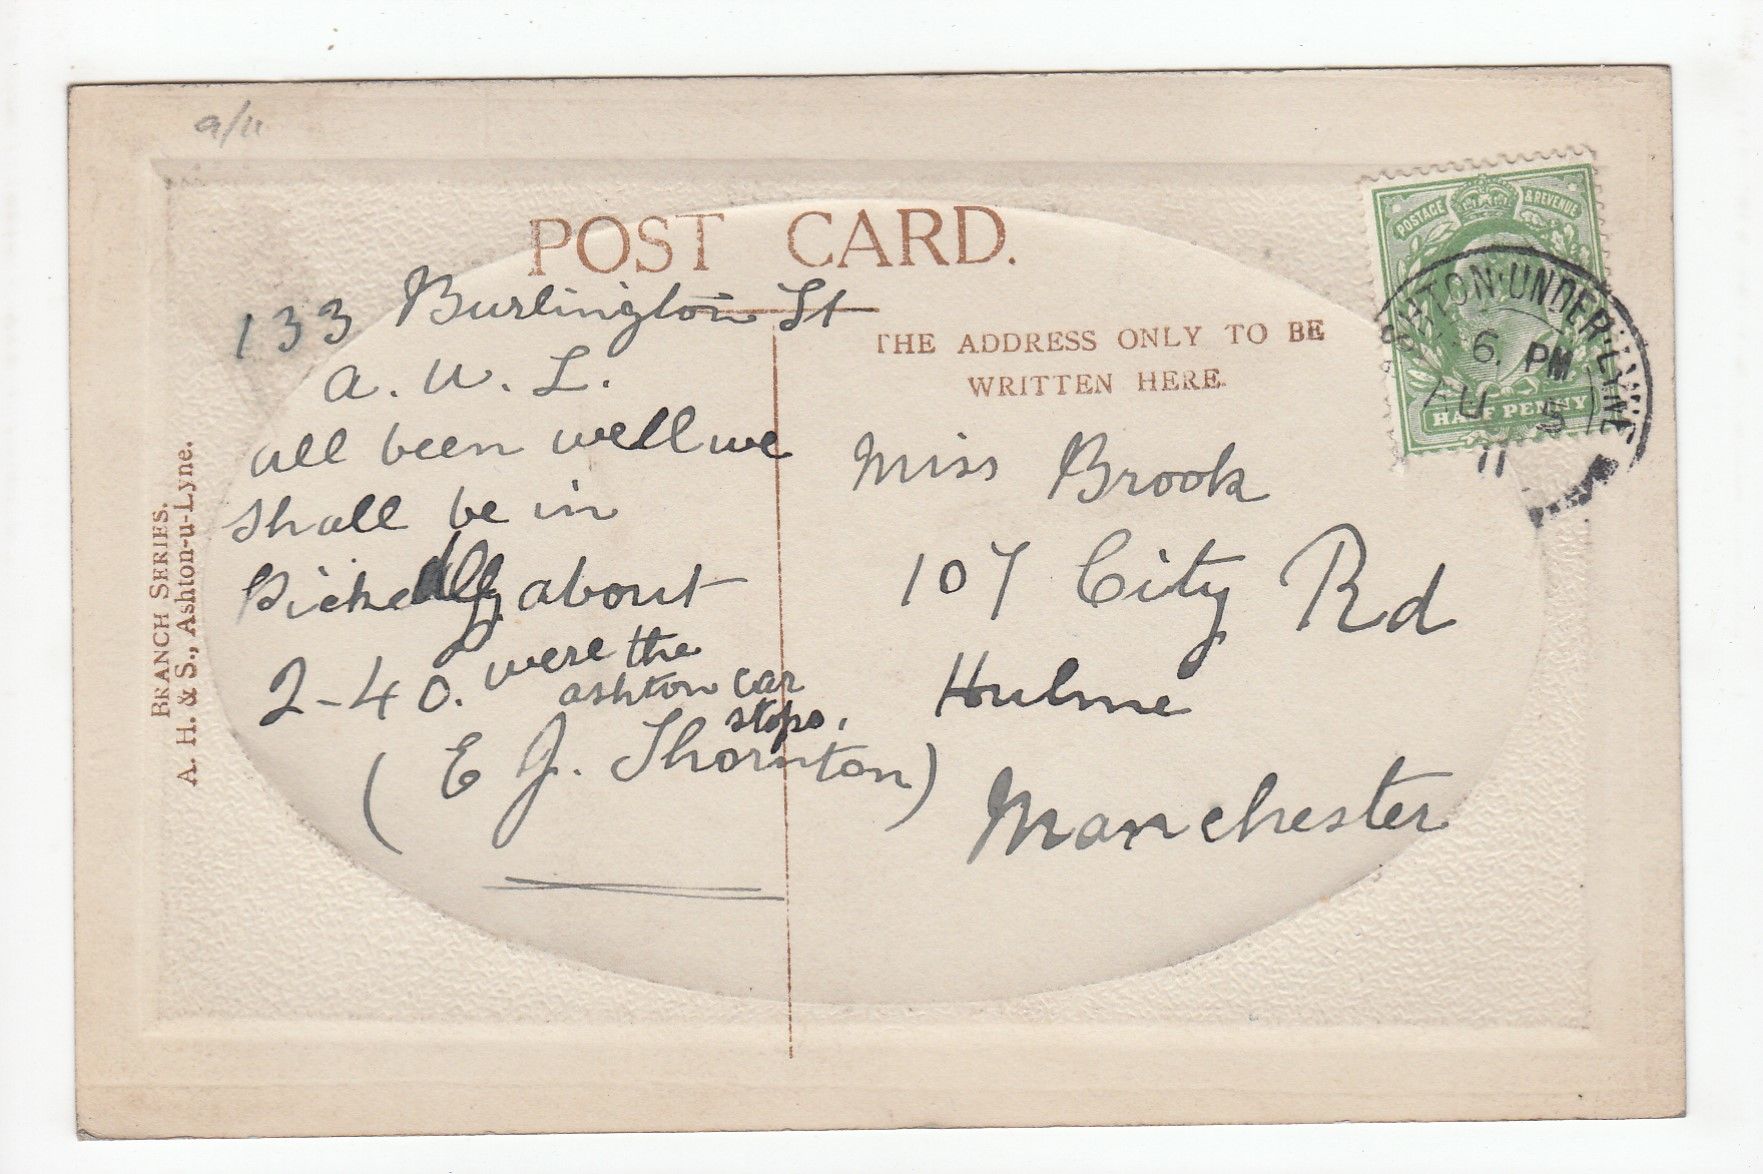 9/11
POST CARD.
133 Burlington St
A. U. L.
All been well we
shall be in
Pickadlly about
2-40. were the
ashton car
stops.
(E J. Thornton)
THE ADDRESS ONLY TO BE
WRITTEN HERE.
Miss Brook
107 City Rd
Hulme
Manchester
BRANCH SERIES.
A. H. & S., Ashton-u-Lyne.
POSTAGE & REVENUE
HALF PENNY
ASHTON-UNDER-LYNE
6. PM
5
11